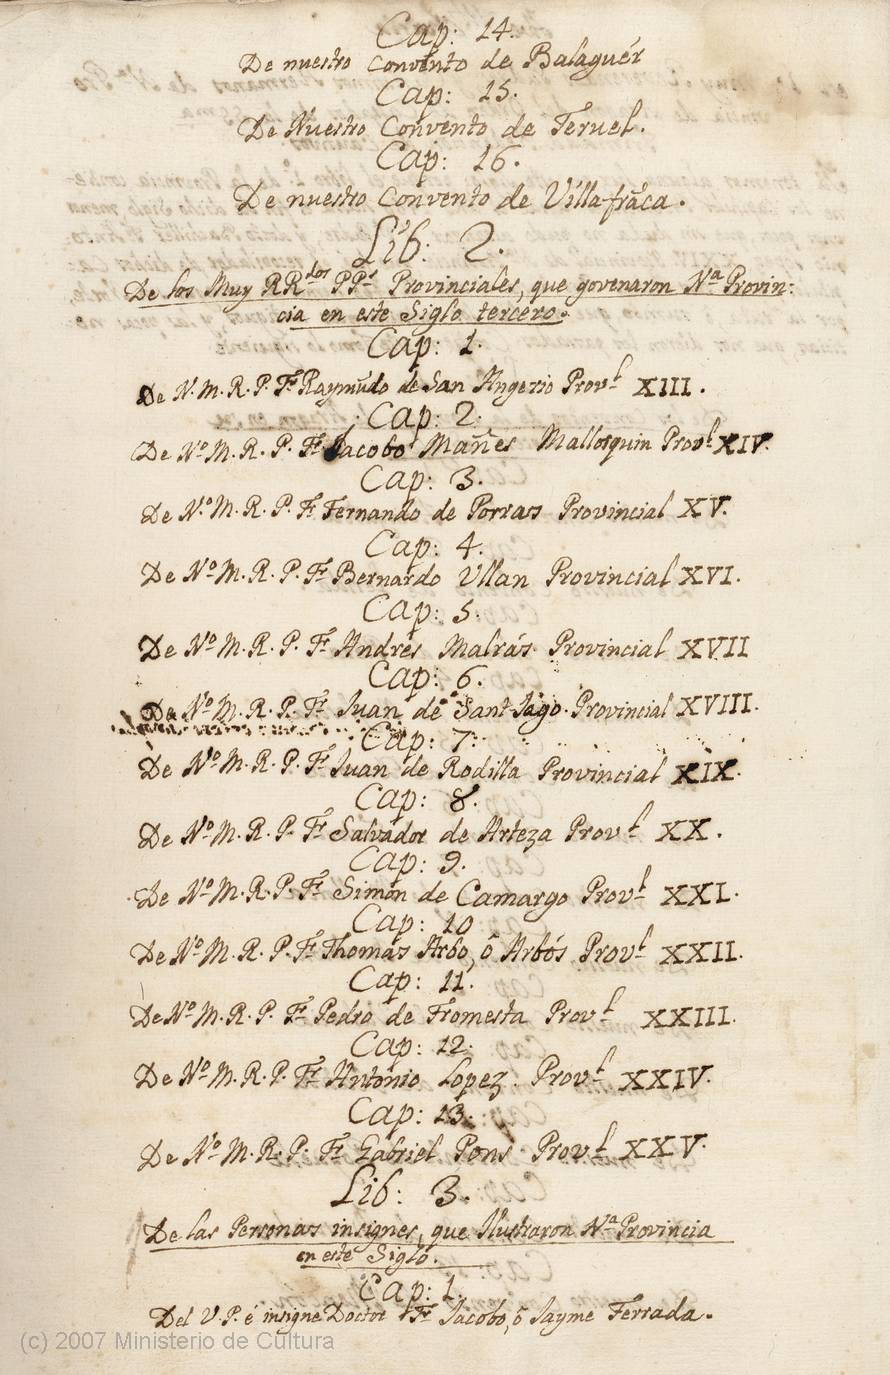 Cap: 14.
De nuestro Convento de Balaguér
Cap: 15.
De Nuestro Convento de Teruel.
Cap: 16.
De nuestro Convento de Villa-frãca.
Lib: 2.
De los Muy RR.dos PP.s Provinciales, que governaron N.a Provin:
cia en este Siglo tercero.
Cap: 1.
De N. M. R. P. Fr. Raymũdo de San Angerio Prov.l XIII.
Cap: 2.
De N.o M. R. P. Fr. Jacobo Mañes Mallosquin Prov.l XIV.
Cap: 3.
De N.o M. R. P. Fr. Fernando de Porras Provincial XV.
Cap: 4.
De N.o M. R. P. Fr. Bernardo Ullan Provincial XVI.
Cap: 5.
De N.o M. R. P. Fr. Andrés Malrás Provincial XVII
Cap: 6.
De N.o M. R. P. Fr. Juan de Sant-Jago. Provincial XVIII.
Cap: 7.
De N.o M. R. P. Fr. Juan de Rodilla Provincial XIX.
Cap: 8.
De N.o M. R. P. Fr. Salvador de Arteza Prov.l XX.
Cap: 9.
De N.o M. R. P. Fr. Simón de Camargo Prov.l XXI.
Cap: 10
De N.o M. R. P. Fr. Thomás Arbo, ó Arbós Prov.l XXII.
Cap: 11.
De N.o M. R. P. Fr. Pedro de Fromesta Prov.l XXIII.
Cap: 12.
De N.o M. R. P. Fr. Antonio Lopez. Prov.l XXIV.
Cap: 13.
De N.o M. R. P. Fr. Gabriel Pons Prov.l XXV.
Lib: 3.
De las Personas insignes, que Ilustraron N.a Provincia
en este Siglo.
Cap: 1.
Del V. P. é insigne Doctor Fr. Jacobo, ó Jayme Ferrada.
(c) 2007 Ministerio de Cultura